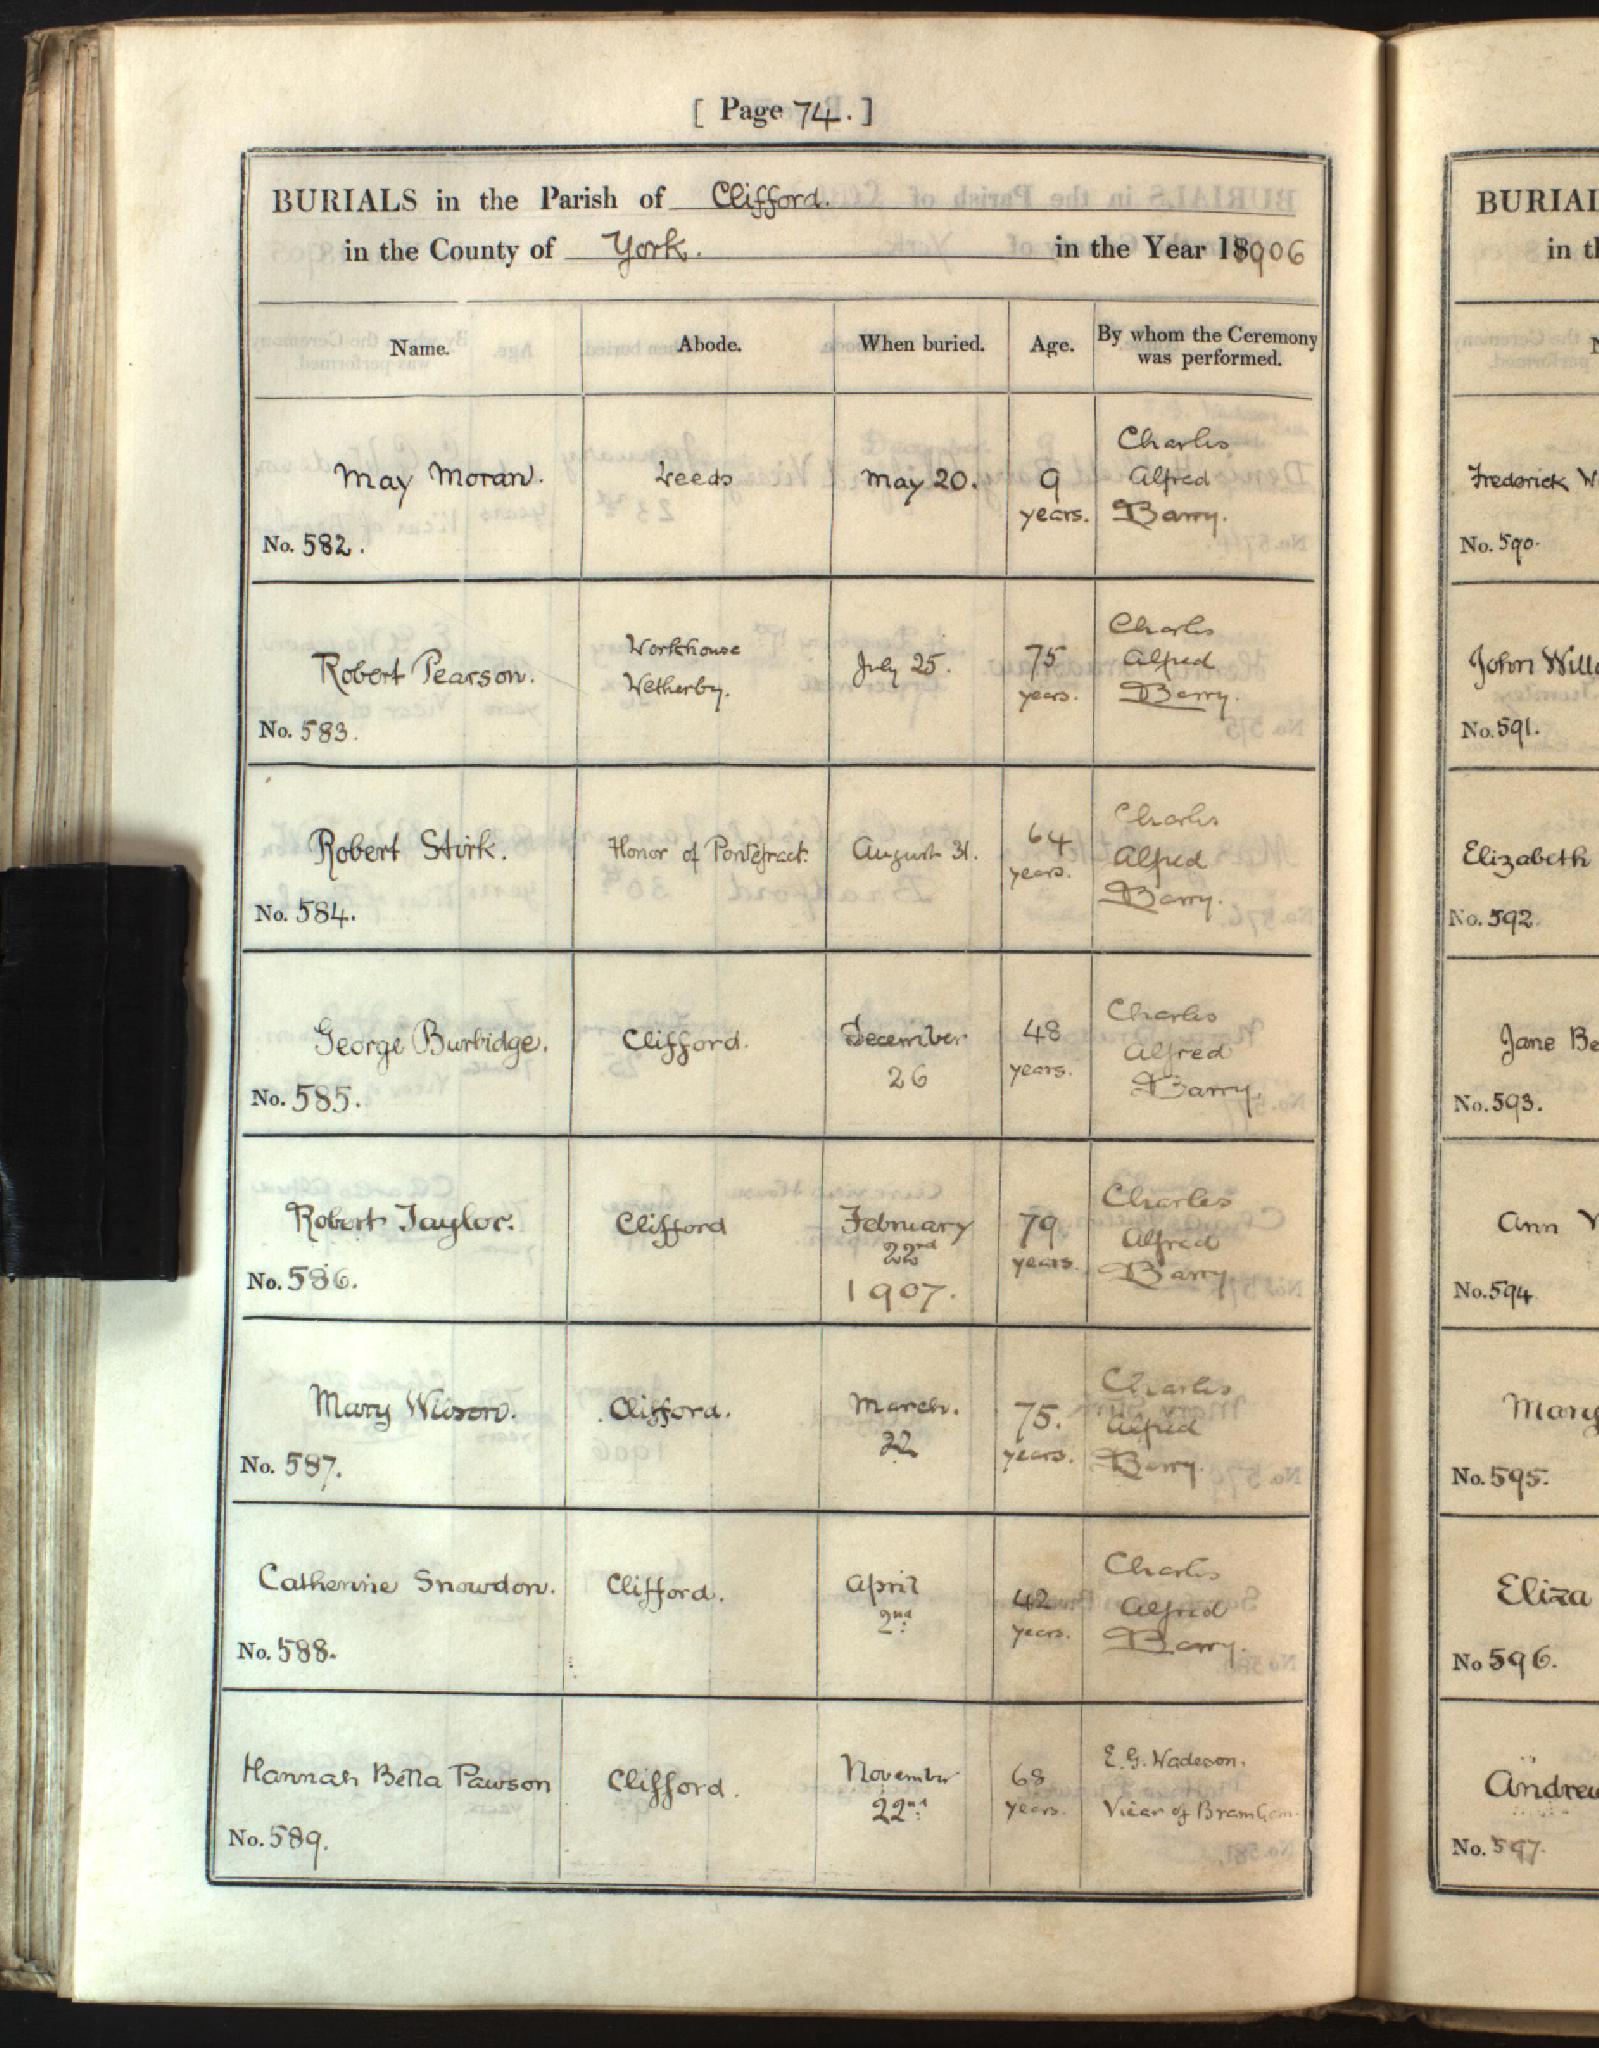 [ Page 74. ]
BURIALS in the Parish of Clifford.
in the County of York. in the Year 18906
Name. Abode. When buried. Age. By whom the Ceremony was performed.
May Moran. Leeds May 20. 9 years. Charles Alfred Barry.
No. 582.
Robert Pearson. Workhouse Wetherby. July 25. 75 years. Charles Alfred Barry.
No. 583.
Robert Stirk. Honor of Pontefract. August 31. 64 years. Charles Alfred Barry.
No. 584.
George Burbidge. Clifford. December 26 48 years. Charles Alfred Barry.
No. 585.
Robert Taylor. Clifford February 22nd 1907. 79 years. Charles Alfred Barry
No. 586.
Mary Wilson. Clifford. March. 22 75. years. Charles Alfred Barry.
No. 587.
Catherine Snowdon. Clifford. April 2nd 42 years. Charles Alfred Barry.
No. 588.
Hannah Bella Pawson Clifford. November 22nd 68 years. E. G. Wadeson. Vicar of Bramham.
No. 589.
BURIAL
in th
Frederick W
No. 590.
John Will
No. 591.
Elizabeth
No. 592.
Jane Be
No. 593.
Ann
No. 594
Mary
No. 595.
Eliza
No 596.
Andrew
No. 597.